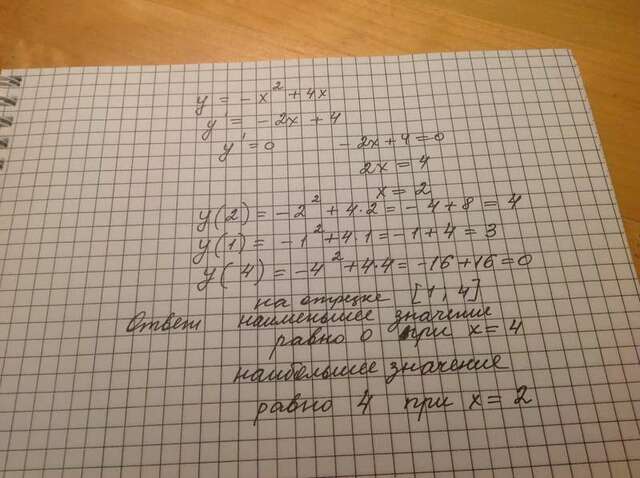 y = - x² + 4x
y' = - 2x + 4
y' = 0 - 2x + 4 = 0
2x = 4
x = 2
y(2) = - 2² + 4·2 = - 4 + 8 = 4
y(1) = - 1² + 4·1 = - 1 + 4 = 3
y(4) = - 4² + 4·4 = - 16 + 16 = 0
на отрезке [1, 4]
Ответ наименьшее значение
равно 0 при x = 4
наибольшее значение
равно 4 при x = 2